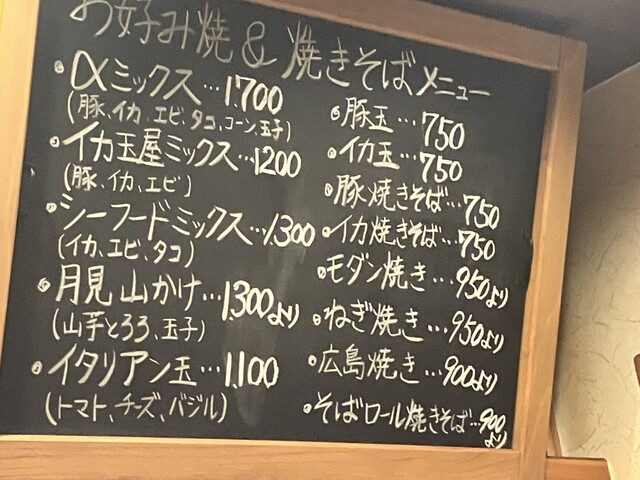 お好み焼&焼きそばメニュー
・αミックス…1,700
(豚、イカ、エビ、タコ、コーン、玉子)
・イカ玉屋ミックス…1200
(豚、イカ、エビ)
・シーフードミックス…1,300
(イカ、エビ、タコ)
・月見山かけ…1,300より
(山芋とろろ、玉子)
・イタリアン玉…1,100
(トマト、チーズ、バジル)
・豚玉…750
・イカ玉…750
・豚焼きそば…750
・イカ焼きそば…750
・モダン焼き…950より
・ねぎ焼き…950より
・広島焼き…900より
・そばロール焼きそば…900より